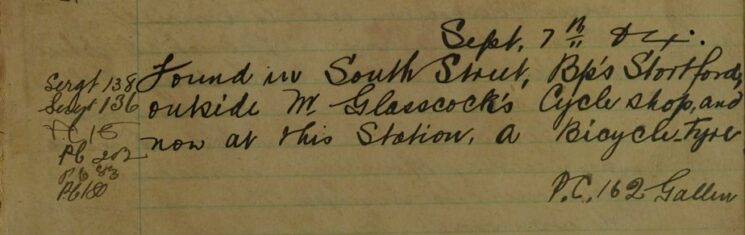 Sept. 7th 04.
Found in South Street, Bp's Stortford,
outside Mr Glasscock's Cycle shop, and
now at this Station, a Bicycle tyre
P.C. 162 Gallen
Sergt 138
Sergt 136
PC 15
Pb 202
Pb 83
Pb 180